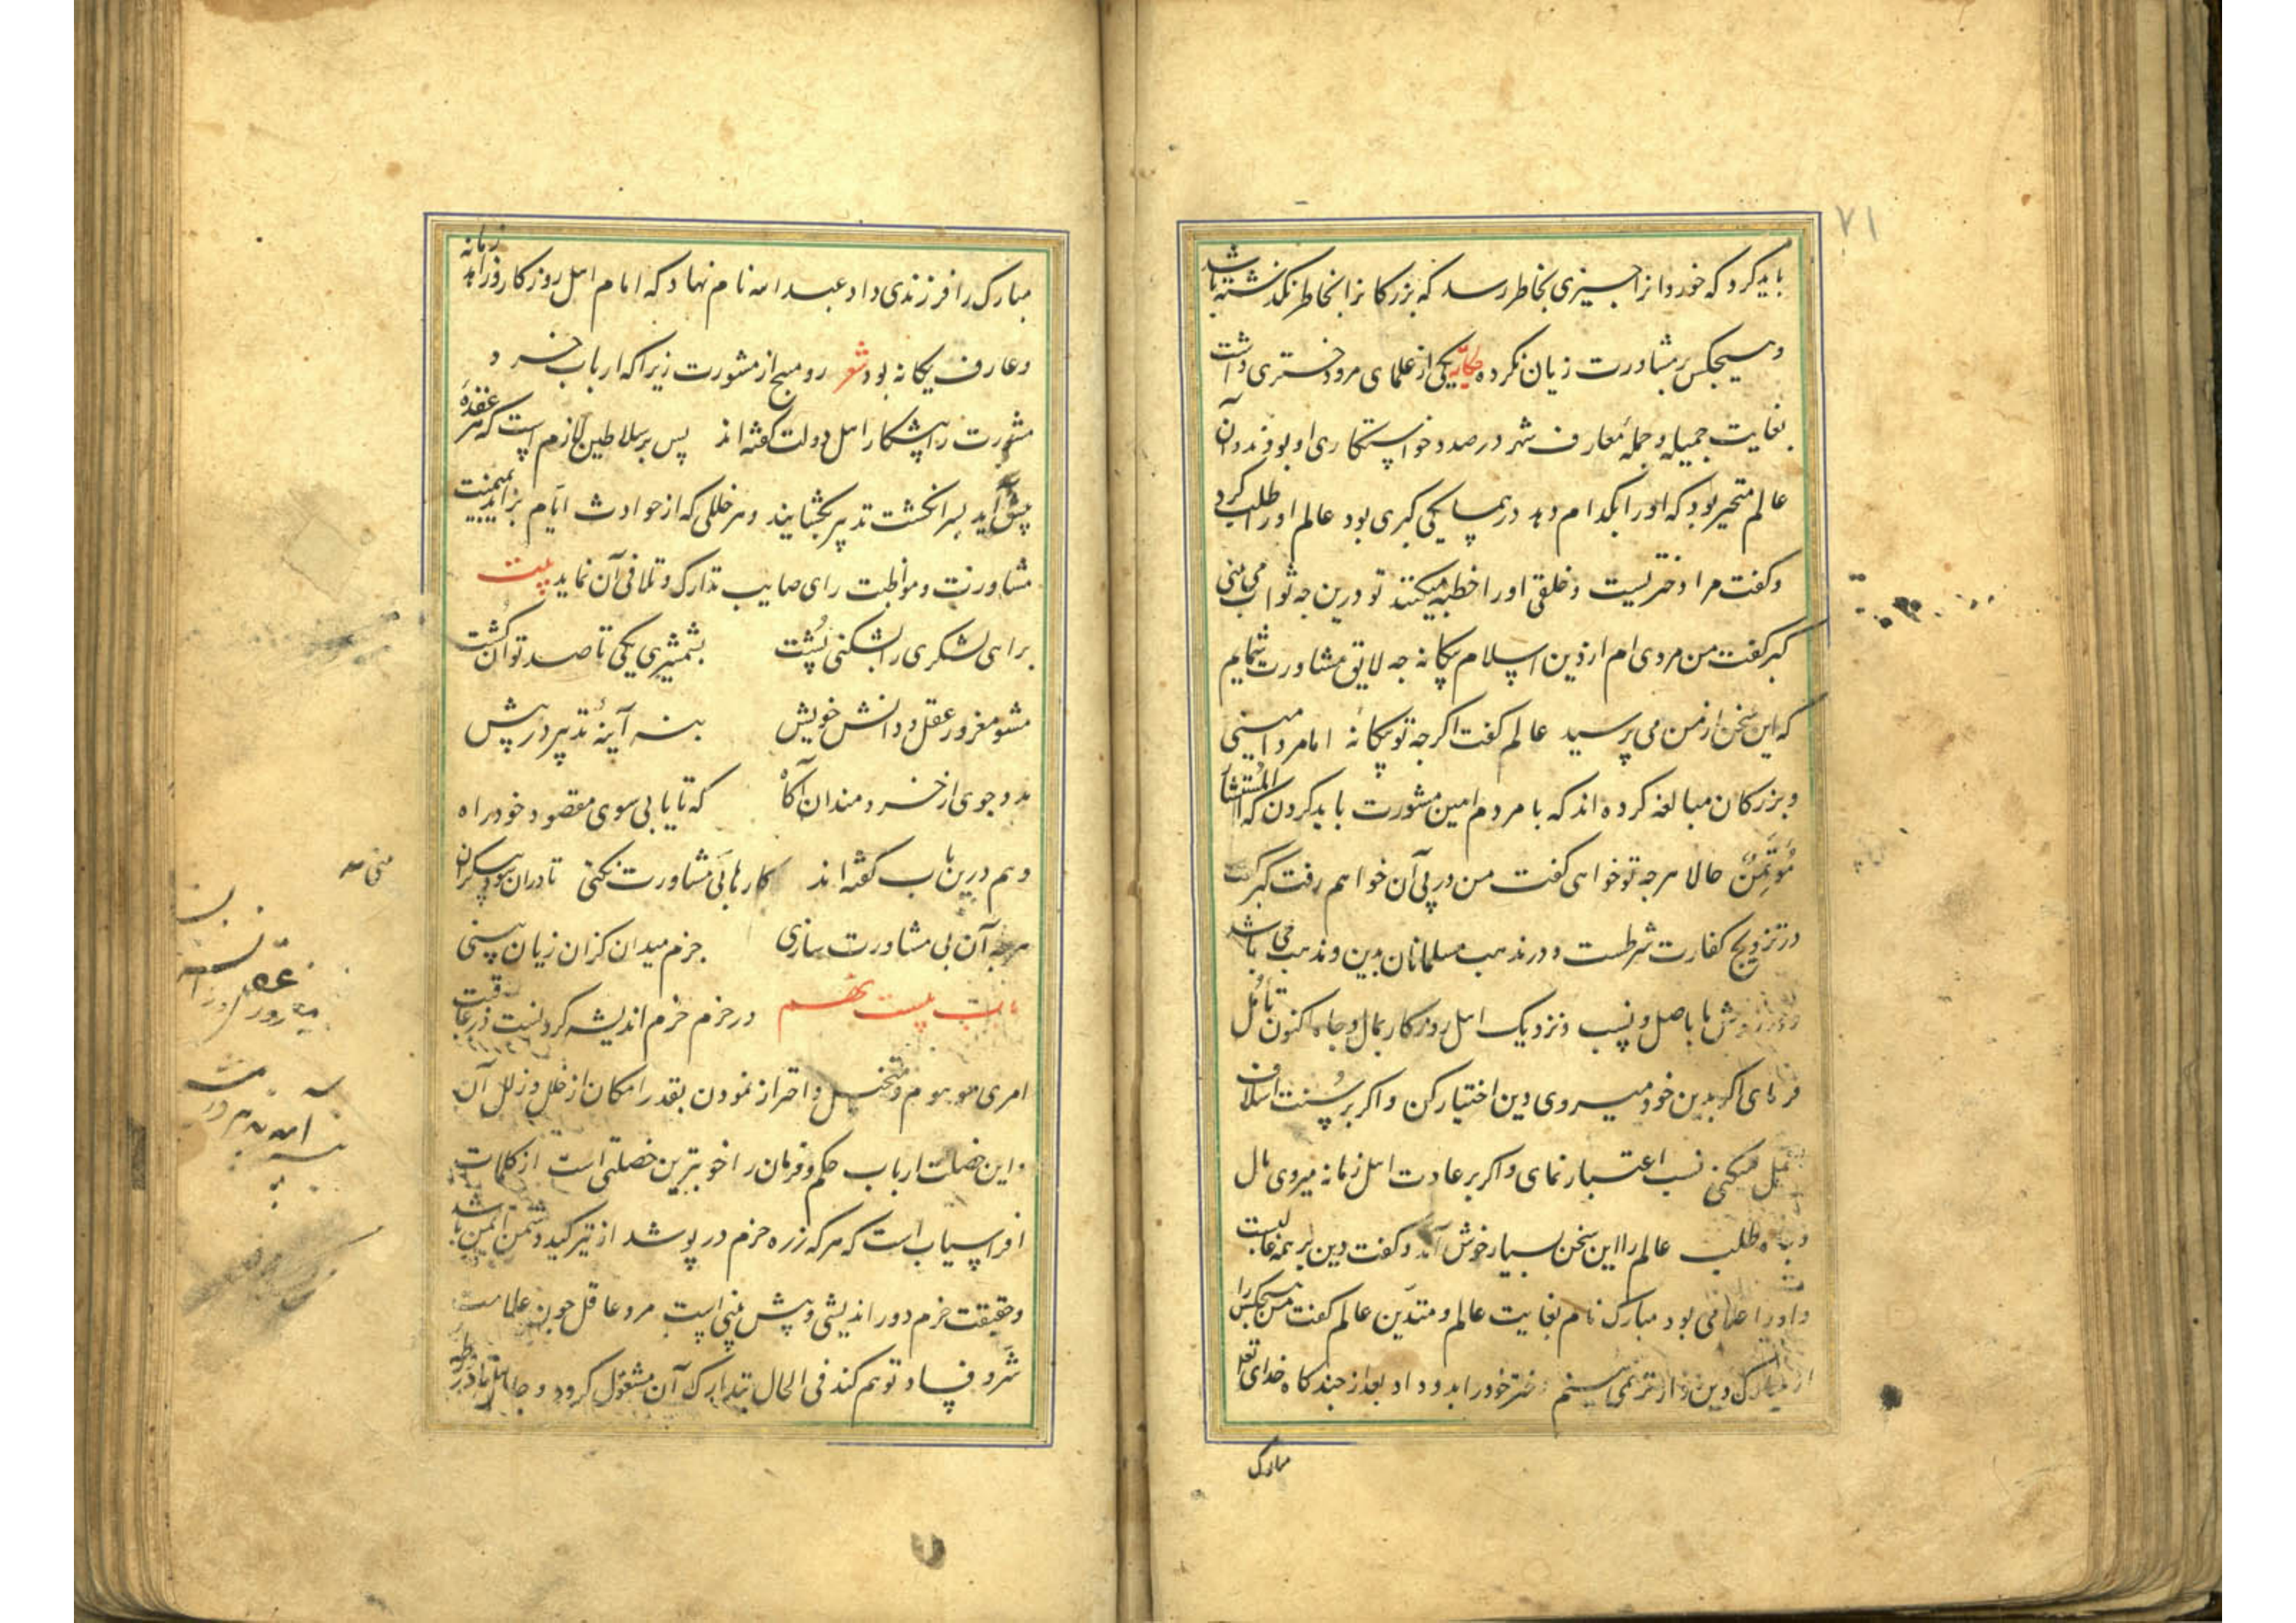 ۷۱
باید کرد که خوردانرا چیزی بخاطر رسد که بزرکانرا بخاطر نکذشته باشد
و هیچکس بر مشاورت زیان نکرده حکایة یکی از علمای مرو دختری داشت
بغایت جمیله و جملهٔ معارف شهر در صدد خواستکاری او بودند و آن
عالم متحیر بود که او را بکدام دهد در همسایکی کبری بود عالم او را طلب کرد
و کفت مرا دختریست و خلقی او را خطبه میکنند تو درین چه ثواب می بینی
کبر کفت من مردی ام از دین اسلام بیکانه چه لایق مشاورت شمایم
که این سخن از من می پرسید عالم کفت اکرچه تو بیکانهٔ اما مرد امینی
و بزرکان مبالغه کرده اند که با مردم امین مشورت باید کردن که المستشار
مُؤتَمِنٌ حالا هرچه تو خواهی کفت من در پی آن خواهم رفت کبر کفت
در تزویج کفارت شرطست و در مذهب مسلمانان بدین و مذهب می باشد
و در روش ما باصل و نسب و نزدیک اهل روزکار بمال و جاه اکنون تأمل
فرمای اکر بدین خود میروی دین اختیار کن و اکر بر سُنت اسلاف
عمل میکنی نسب اعتبار نمای و اکر بر عادت اهل زمانه میروی مال
و جاه طلب عالم را این سخن بسیار خوش آمد و کفت دین بر همه غالبست
و او را غلامی بود مبارک نام بغایت عالم و متدین عالم کفت من هیچکس را
از مبارک دین دارتر نمی بینم دختر خود را بدو داد بعد از چند کاه خدای تعالی
مبارک
مبارک را فرزندی داد عبدالله نام نهاد که امام اهل روزکار و زاهد زمانه
و عارف یکانه بود شعر رو مپیچ از مشورت زیرا که ارباب خرد
مشورت را پیشکار اهل دولت کفته اند پس بر سلاطین لازم است که هر عقدهٔ
پیش آید بسر انکشت تدبیر بکشایند و هر خللی که از حوادث ایام بزاید بمیمنت
مشاورت و مواظبت رای صایب تدارک و تلافی آن نماید بیت
برایی لشکری را بشکنی پُشت بشمشیری یکی تا صد توان کُشت
مشو مغرور عقل و دانش خویش بنه آینهٔ تدبیر در پیش
مدد جوی از خردمندان آکاه که تا یابی سوی مقصود خود راه
و هم درین باب کفته اند کارها بی مشاورت نکنی تا دران سود بیکران
هرچه آن بی مشاورت سازی جزم میدان کزان زیان بینی
باب بیست نهم در حزم حزم اندیشه کردنست در عاقبت
امری موهوم و متخیل و احتراز نمودن بقدر امکان از خلل و زلل آن
و این خصلت ارباب حکم و فرمان را خوبترین خصلتی است از کلمات
افراسیاب است که هر که زره حزم در پوشد از تیر کید دشمن ایمن باشد
و حقیقت حزم دوراندیشی و پیش بینی است مرد عاقل چون علامت
شر و فساد توهم کند فی الحال بتدارک آن مشغول کردد و جاهل تا در ورطه